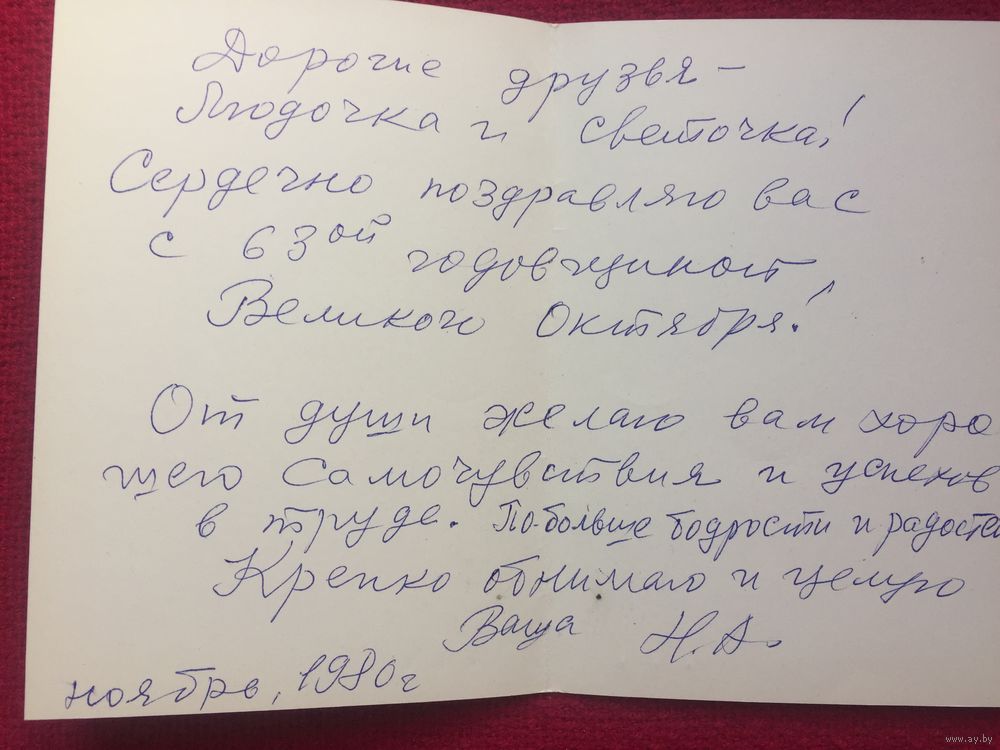 Дорогие друзья –
Людочка и Светочка!
Сердечно поздравляю вас
с 63ой годовщиной
Великого Октября!
От души желаю вам хоро
шего самочувствия и успехов
в труде. По-больше бодрости и радостей
Крепко обнимаю и целую
Ваша Н.А.
ноябрь, 1980 г
www.ay.by